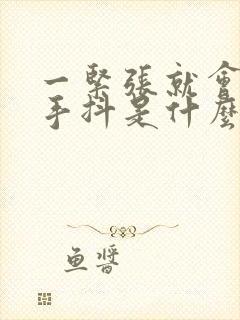 一緊張就會
手抖是什麼
鱼醬